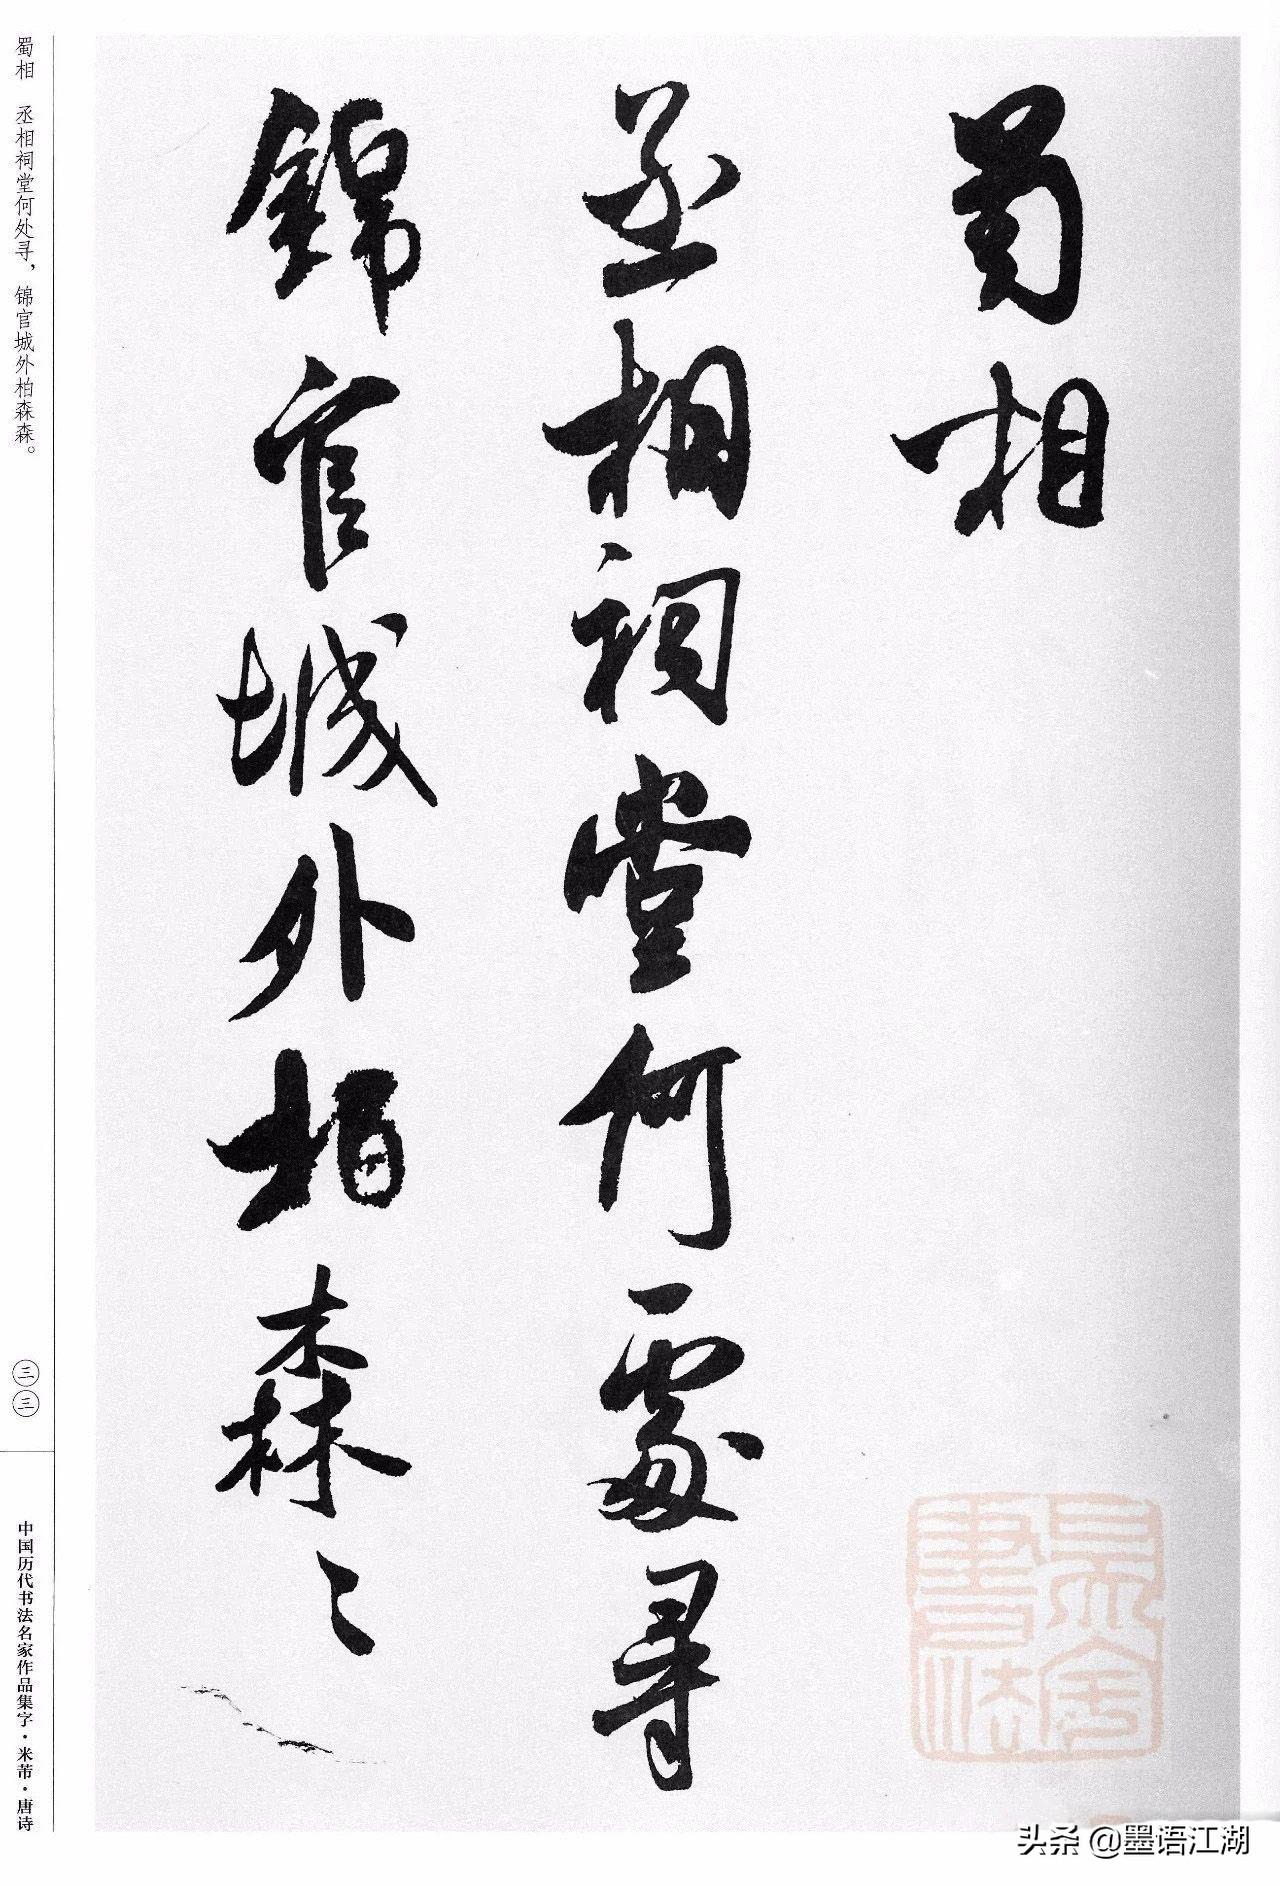 蜀相
丞相祠堂何處尋
錦官城外柏森〻
蜀相 丞相祠堂何处寻，锦官城外柏森森。
三三
中国历代书法名家作品集字·米芾·唐诗
头条 @墨语江湖